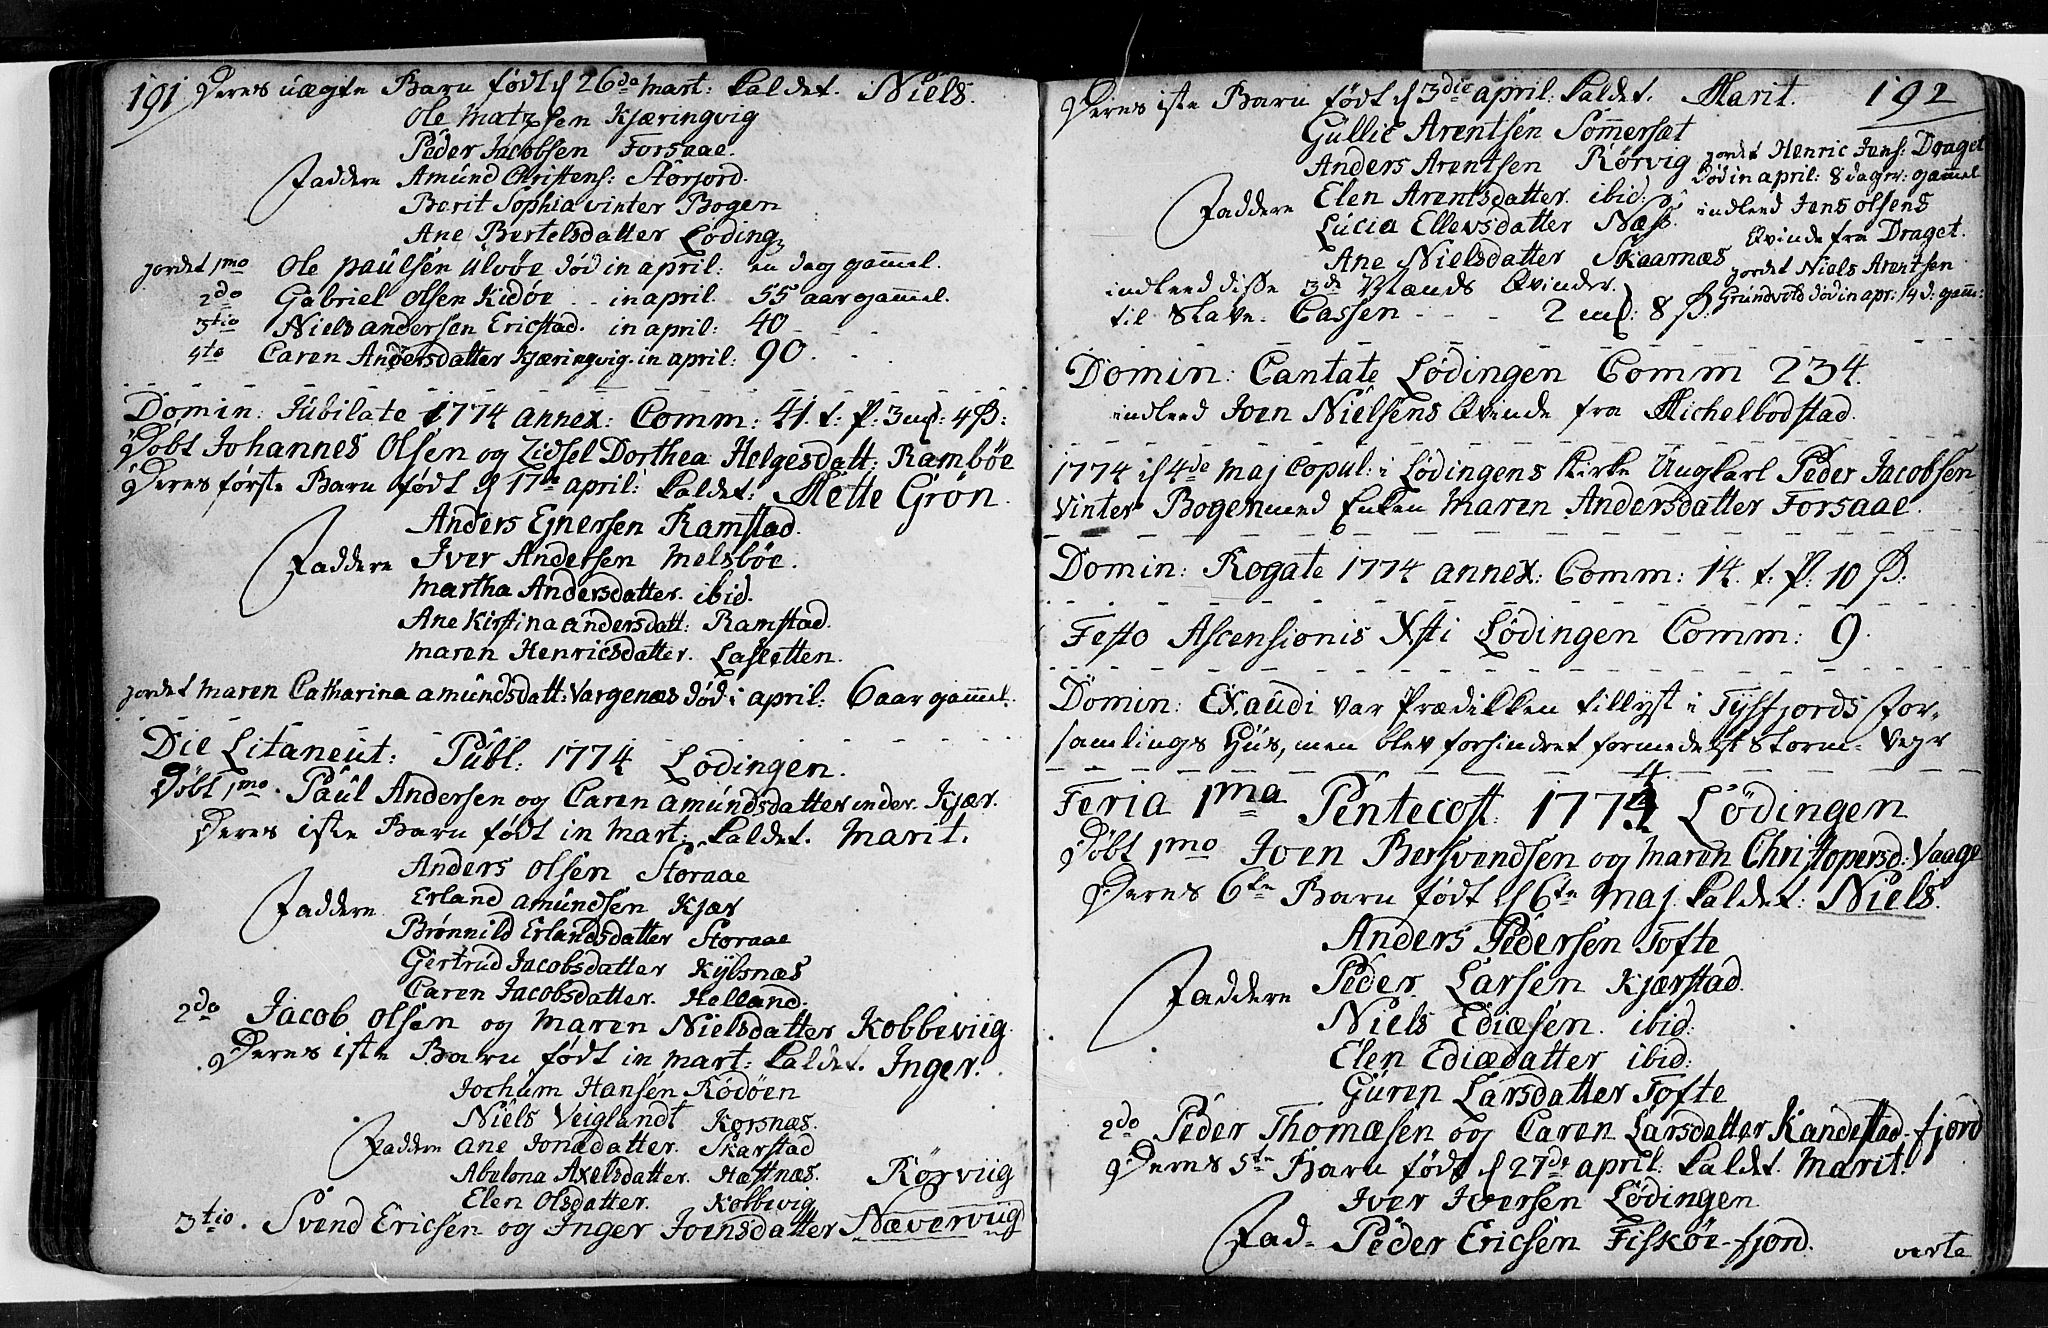 191 Deres uægte Barn født d 26de Mart: kaldet. Niels.
Ole Matzsen Kjæringvig
Peder Jacobsen Forsaae.
Faddere Amund Christens: Storjord.
Berit Sophia vinter Bogen
Ane Bertelsdatter Løding
jordet 1mo Ole Paulsen Ulvøe død in april: en dag gammel.
2do Gabriel Olsen Kidøe - - in april. 55 aar gammel.
3tio Niels andersen Ericstad. in april: 40 - - -
4to Caren Andersdatter Kjæringvig. in april: 90. - -
Domin: Jubilate 1774 annex: Comm: 41. t: P: 3 m/: 4 ß:
Døbt Johannes Olsen og Zidsel Dorthea Helgesdatt: Rambøe
Deres første Barn født d 17de april: kaldet: Mette Grøn.
Anders Ejnersen Ramstad.
Faddere Iver Andersen Melsbøe.
Martha Andersdatter. ibid.
Ane Kirstina andersdatt: Ramstad.
Maren Henricsdatter. Lasletten.
jordet Maren Catharina amundsdatt: Vargenæs død i april: 6 aar gammel.
Die Litaneut: Publ: 1774 Lødingen.
Døbt 1mo. Paul Andersen og Caren amundsdatter Kjær.
Deres 1ste Barn født in Mart: kaldet. Marit.
Anders Olsen Storaae
Faddere Erland amundsen Kjær
Brønnild Erlandsdatter Storaae
Gertrud Jacobsdatter Kylsnæs
Caren Jacobsdatter. Helland.
2do Jacob Olsen og Maren Nielsdatter Kobbeviig.
Deres 1ste Barn født in Mart: kaldet. Inger.
Jochum Hansen Rødøen
Niels Veiglandt Korsnæs.
Faddere Ane Jonædatter. Skarstad
Abelona Axelsdatter. Hæstnæs. Rørviig
Elen Olsdatter. Kobbevig
3tio. Svend Ericsen og Inger Joensdatter Næverviig
Deres 1ste Barn født d 3die april: kaldet. Marit. 192
Gullic Arentsen Sommersæt
Anders Arentsen Rørvig
Faddere Elen Arentsdatter. ibid:
Lucia Ellevsdatter Næss.
Ane Nielsdatter Skaarnæs
jordet Henric Jens: Draget
død in april: 8 dage: gammel
indleed Jens Olsens
Qvinde fra Draget.
jordet Niels Arentsen
Grundvold død in apr: 14 d: gamm:
indleed disse 3de Mænds Qvinder.
til Slave- Cassen - - - 2 m/: 8 ß:
Domin: Cantate Lødingen Comm 234.
indleed Joen Nielsens Qvinde fra Michelbodstad.
1774 d 4de Maj Copul: i Lødingens Kirke Ungkarl Peder Jacobsen
Vinter Bogen med Enken Maren Andersdatter Forsaae.
Domin: Rogate 1774 annex: Comm: 14. t: P: 10 ß:
Festo Ascensionis Xsti Lødingen Comm: 9.
Domin: Exaudi var Prædikken tillyst i Tysfjords For-
samlings Huus, men blev forhindret formedelst Storm- Vejr
Feria 1ma Pentecost. 1774 Lødingen
Døbt 1mo Joen Bersvendsen og Maren Christopersd: Vaage
Deres 6te Barn født d 6te Maj kaldet: Niels.
Anders Pedersen Tofte
Faddere Peder Larsen Kjærstad.
Niels Ediæsen. ibid:
Elen Ediædatter ibid:
Guren Larsdatter Tofte
2do Peder Thomæsen og Caren Larsdatter Kandestad-fjord
Deres 5te Barn født d 27de april: kaldet. Marit.
Iver Iversen Lødingen
Fad- Peder Ericsen Fiskøe-fjord.
verte